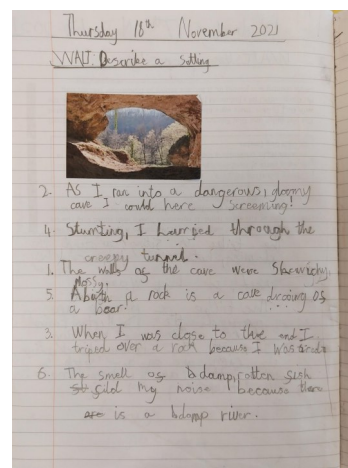 Thursday 18th November 2021
WALT: Describe a setting
2. As I ran into a dangerous, gloomy
cave I could here screeming!
4. I hurried through the
creepy tunnel.
1. The walls of the cave were
5. A rock is a cave of
a bear.
3. When I was close to the end I
triped over a rock because I was
6. The smell of damp, rotten fish
my noise because there
is a damp river.